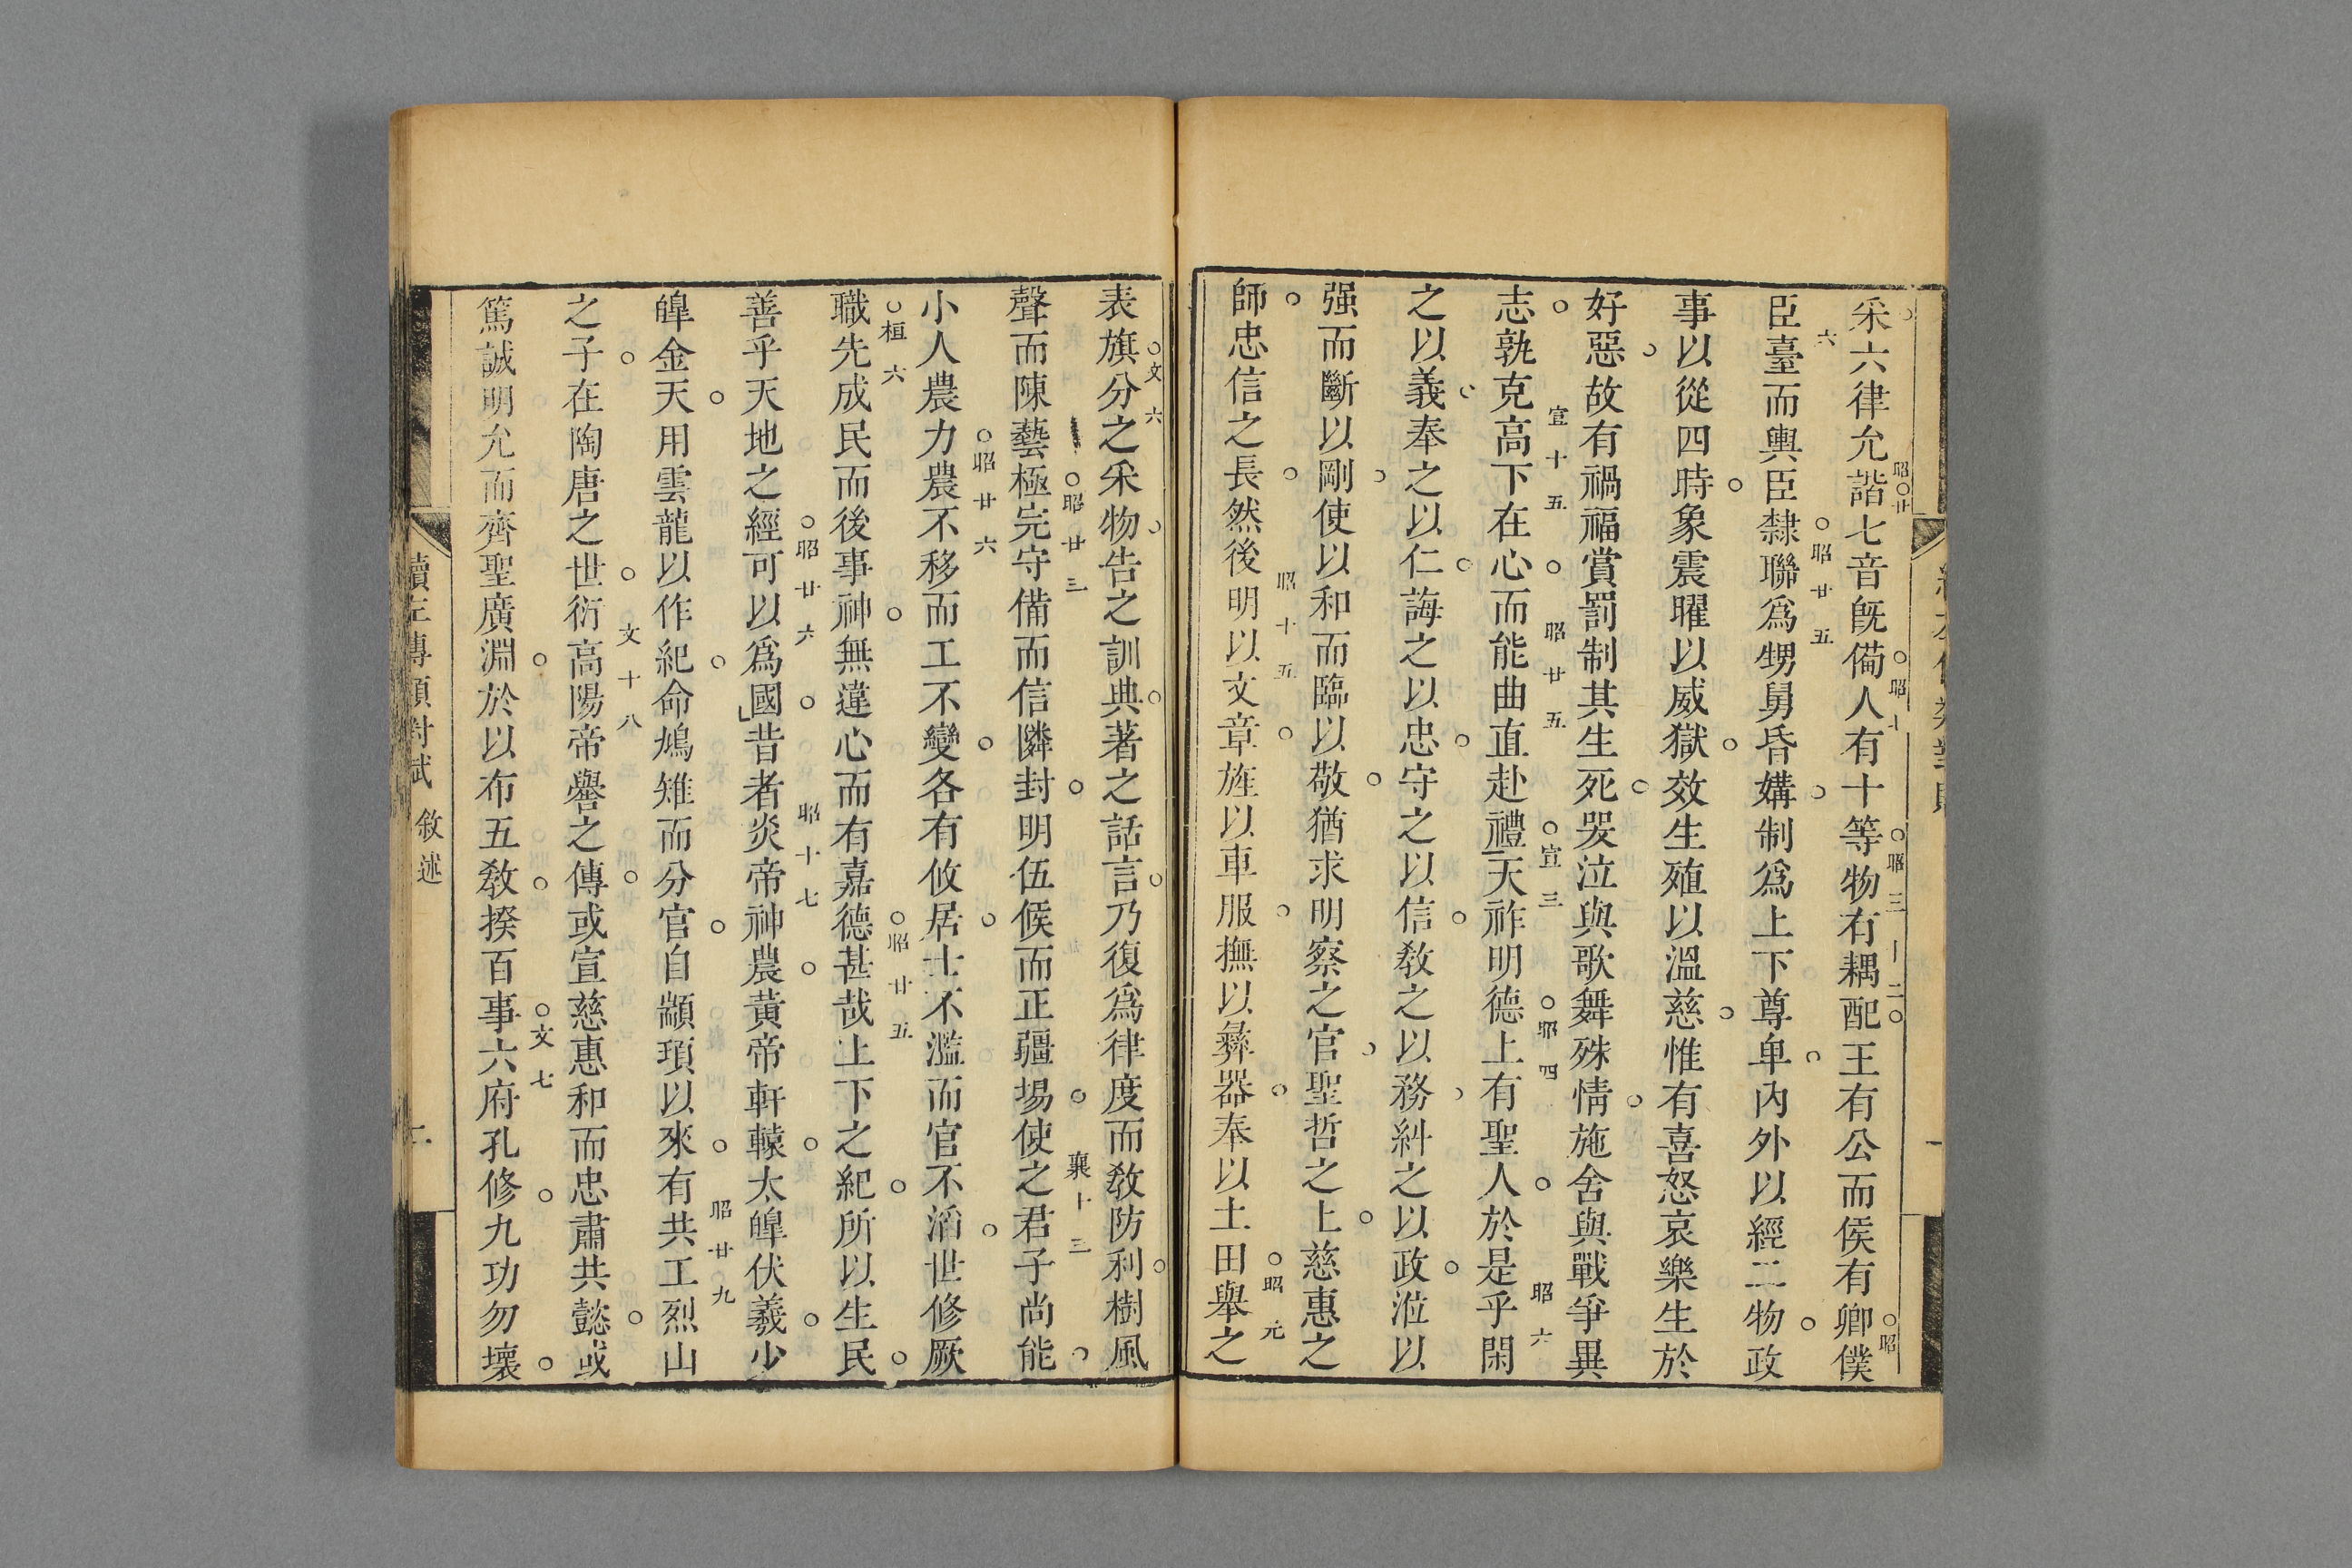 采六律允諧七音旣備人有十等物有耦配王有公而侯有卿僕
昭廿
昭十
昭三十二
昭
臣臺而輿臣隸聯爲甥舅昏媾制爲上下尊卑內外以經二物政
六
昭廿五
事以從四時象震曜以威獄效生殖以溫慈惟有喜怒哀樂生於
好惡故有禍福賞罰制其生死哭泣與歌舞殊情施舍與戰爭異
志孰克高下在心而能曲直赴禮天祚明德上有聖人於是乎閑
宣十五
昭廿五
宣三
昭四
昭六
之以義奉之以仁誨之以忠守之以信敎之以務糾之以政涖以
强而斷以剛使以和而臨以敬猶求明察之官聖哲之上慈惠之
師忠信之長然後明以文章旌以車服撫以彝器奉以土田舉之
昭十五
昭元
表旗分之采物告之訓典著之話言乃復爲律度而敎防利樹風
文六
聲而陳藝極完守備而信隣封明伍候而正疆埸使之君子尚能
昭廿三
襄十三
小人農力農不移而工不變各有攸居士不濫而官不滔世修厥
昭廿六
職先成民而後事神無違心而有嘉德甚哉上下之紀所以生民
桓六
昭廿五
善乎天地之經可以爲國昔者炎帝神農黃帝軒轅太皡伏羲少
昭廿六
昭十七
皡金天用雲龍以作紀命鳩雉而分官自顓頊以來有共工烈山
昭廿九
之子在陶唐之世衍高陽帝嚳之傳或宣慈惠和而忠肅共懿或
文十八
篤誠明允而齊聖廣淵於以布五敎揆百事六府孔修九功勿壞
文七
讀左傳類對賦 敘述 二